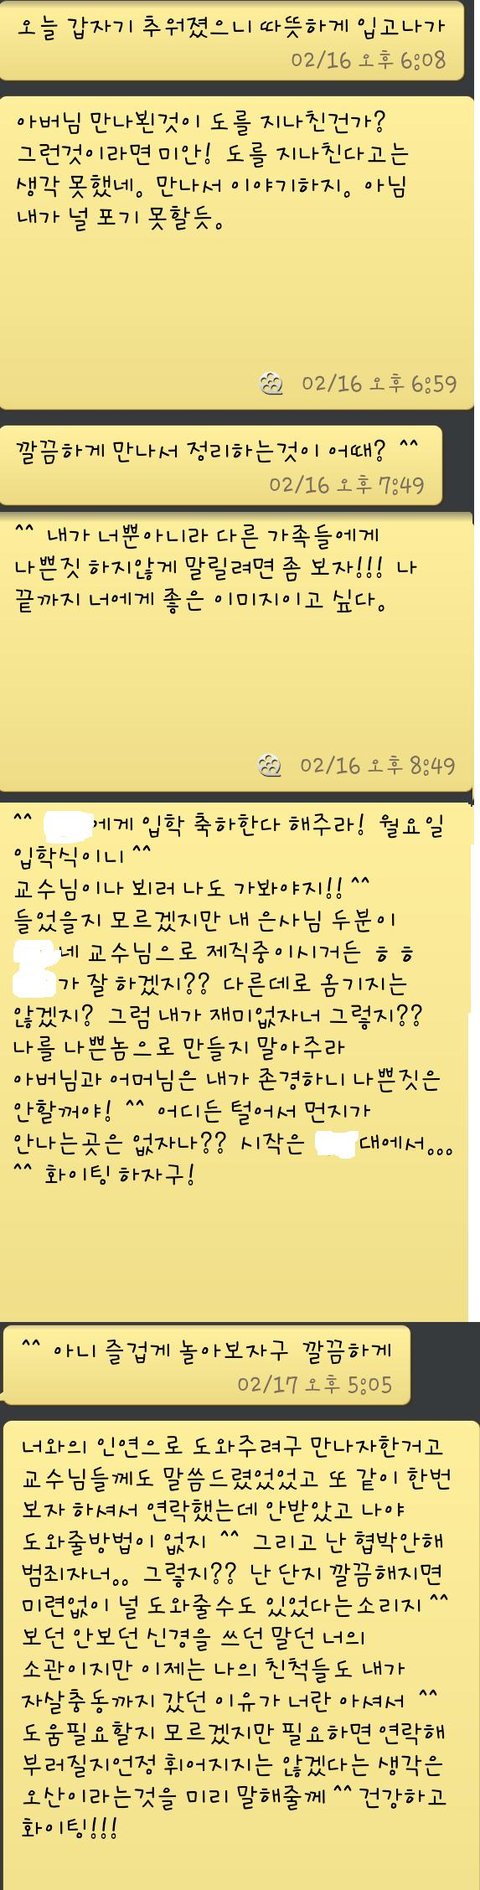 오늘 갑자기 추워졌으니 따뜻하게 입고나가
02/16 오후 6:08
아버님 만나뵌것이 도를 지나친건가?
그런것이라면 미안! 도를 지나친다고는
생각 못했네. 만나서 이야기하지. 아님
내가 널 포기 못할듯.
02/16 오후 6:59
깔끔하게 만나서 정리하는것이 어때? ^^
02/16 오후 7:49
^^ 내가 너뿐아니라 다른 가족들에게
나쁜짓 하지않게 말릴려면 좀 보자!!! 나
끝까지 너에게 좋은 이미지이고 싶다.
02/16 오후 8:49
^^ 에게 입학 축하한다 해주라! 월요일
입학식이니 ^^
교수님이나 뵈러 나도 가봐야지!! ^^
들었을지 모르겠지만 내 은사님 두분이
네 교수님으로 제직중이시거든 ㅎㅎ
가 잘 하겠지?? 다른데로 옴기지는
않겠지? 그럼 내가 재미없자너 그렇지??
나를 나쁜놈으로 만들지 말아주라
아버님과 어머님은 내가 존경하니 나쁜짓은
안할꺼야! ^^ 어디든 털어서 먼지가
안나는곳은 없자나?? 시작은 대에서...
^^ 화이팅 하자구!
^^ 아니 즐겁게 놀아보자구 깔끔하게
02/17 오후 5:05
너와의 인연으로 도와주려구 만나자한거고
교수님들께도 말씀드렸었었고 또 같이 한번
보자 하셔서 연락했는데 안받았고 나야
도와줄방법이 없지 ^^ 그리고 난 협박안해
범죄자너.. 그렇지?? 난 단지 깔끔해지면
미련없이 널 도와줄수도 있었다는소리지 ^^
보던 안보던 신경을 쓰던 말던 너의
소관이지만 이제는 나의 친척들도 내가
자살충동까지 갔던 이유가 너란 아셔서 ^^
도움필요할지 모르겠지만 필요하면 연락해
부러질지언정 휘어지지는 않겠다는 생각은
오산이라는것을 미리 말해줄께 ^^ 건강하고
화이팅!!!